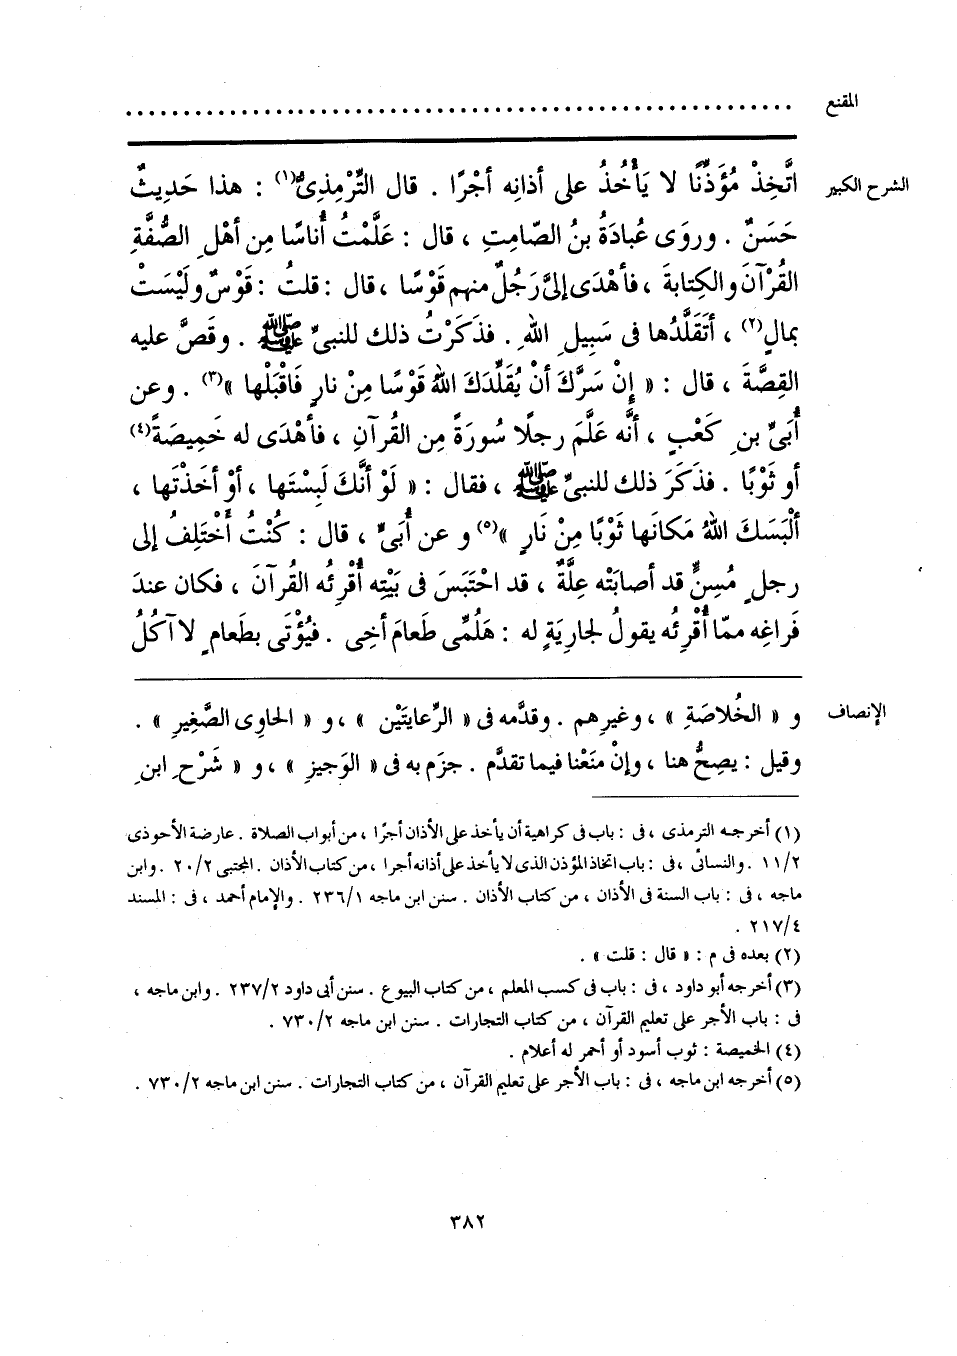 المقنع ..........................................................
الشرح الكبير اتَّخِذْ مُؤَذِّنًا لا يَأْخُذُ على أذانِه أجْرًا . قال التِّرْمِذِىُّ(١) : هذا حَدِيثٌ
حَسَنٌ . وروَى عُبادَةُ بنُ الصّامِتِ ، قال : عَلَّمْتُ أُناسًا مِن أهْلِ الصُّفَّةِ
القُرْآنَ والكِتابةَ ، فأهْدَى إلىَّ رَجُلٌ منهم قَوْسًا ، قال : قلتُ : قَوْسٌ ولَيْسَتْ
بمالٍ(٢) ، أتَقَلَّدُها فى سَبِيلِ اللهِ . فذَكَرْتُ ذلك للنبىِّ ﷺ . وقَصَّ عليه
القِصَّةَ ، قال : « إِنْ سَرَّكَ أنْ يُقَلِّدَكَ اللهُ قَوْسًا مِنْ نارٍ فَاقْبَلْها »(٣) . وعن
أُبَىِّ بنِ كَعْبٍ ، أنَّه عَلَّمَ رجلًا سُورَةً مِن القُرآنِ ، فأهْدَى له خَمِيصَةً(٤)
أو ثَوْبًا . فذَكَرَ ذلك للنبىِّ ﷺ ، فقال : « لَوْ أنَّكَ لَبِسْتَها ، أوْ أخَذْتَها ،
ألْبَسَكَ اللهُ مَكانَها ثَوْبًا مِنْ نَارٍ »(٥) و عن أُبَىٍّ ، قال : كُنْتُ أَخْتَلِفُ إلى
رجلٍ مُسِنٍّ قد أصابَتْه عِلَّةٌ ، قد احْتَبَسَ فى بَيْتِه أُقْرِئُه القُرآنَ ، فكان عندَ
فَراغِه ممّا أُقْرِئُه يقولُ لجارِيَةٍ له : هَلُمِّى طَعامَ أخِى . فيُؤْتَى بطَعامٍ لا آكُلُ
الإنصاف و « الخُلاصَةِ » ، وغيرِهم . وقدَّمه فى « الرِّعايتَيْن » ، و « الحاوِى الصَّغِيرِ » .
وقيل : يصِحُّ هنا ، وإنْ منَعْنا فيما تقدَّم . جزَم به فى « الوَجيزِ » ، و « شَرْحِ ابنِ
(١) أخرجه الترمذى ، فى : باب فى كراهية أن يأخذ على الأذان أجرًا ، من أبواب الصلاة . عارضة الأحوذى
١١/٢ . والنسائى ، فى : باب اتخاذ المؤذن الذى لا يأخذ على أذانه أجرا ، من كتاب الأذان . المجتبى ٢٠/٢ . وابن
ماجه ، فى : باب السنة فى الأذان ، من كتاب الأذان . سنن ابن ماجه ٢٣٦/١ . والإمام أحمد ، فى : المسند
٢١٧/٤ .
(٢) بعده فى م : « قال : قلت » .
(٣) أخرجه أبو داود ، فى : باب فى كسب المعلم ، من كتاب البيوع . سنن أبى داود ٢٣٧/٢ . وابن ماجه ،
فى : باب الأجر على تعليم القرآن ، من كتاب التجارات . سنن ابن ماجه ٧٣٠/٢ .
(٤) الخميصة : ثوب أسود أو أحمر له أعلام .
(٥) أخرجه ابن ماجه ، فى : باب الأجر على تعليم القرآن ، من كتاب التجارات . سنن ابن ماجه ٧٣٠/٢ .
٣٨٢